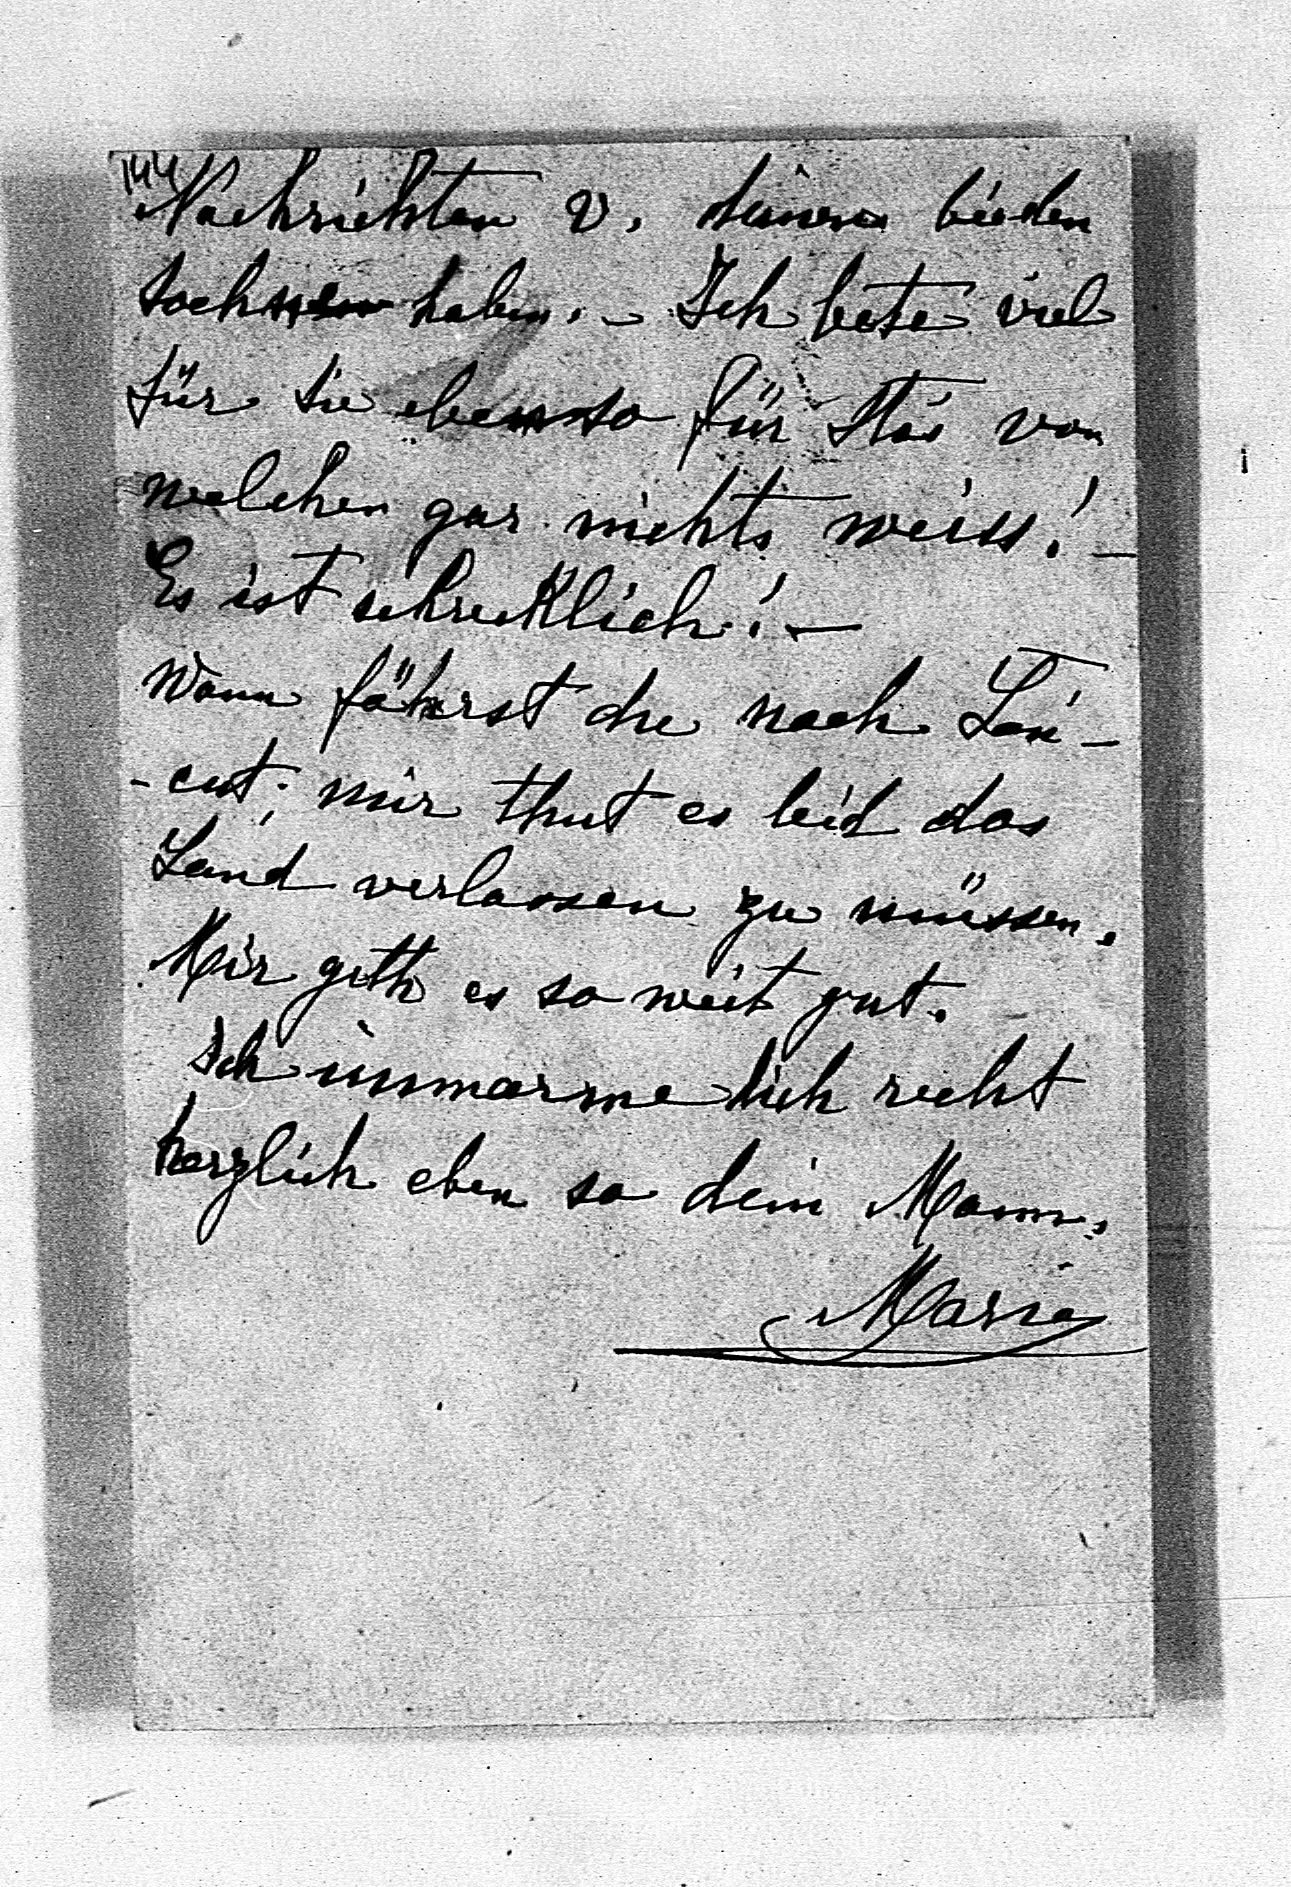 144
Nachrichten v. deinen beiden
haben. – Ich bete viel
für sie ebenso für Staś von
welchen gar nichts weiss! –
Es ist schrecklich! –
Wann fährst du nach Łań-
-cut; mir thut es leid das
Land verlassen zu müssen.
Mir geth es so weit gut.
Ich umarme dich recht
herzlich eben so dein Mann.
Maria